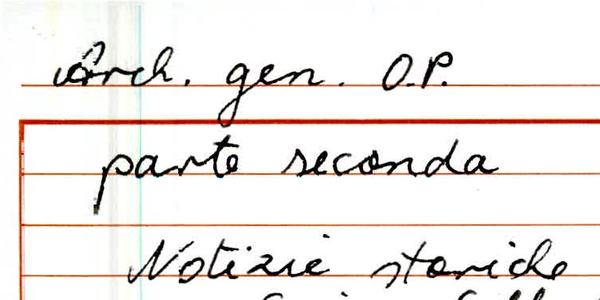 Arch. gen. O.P.
parte seconda
Notizie storiche